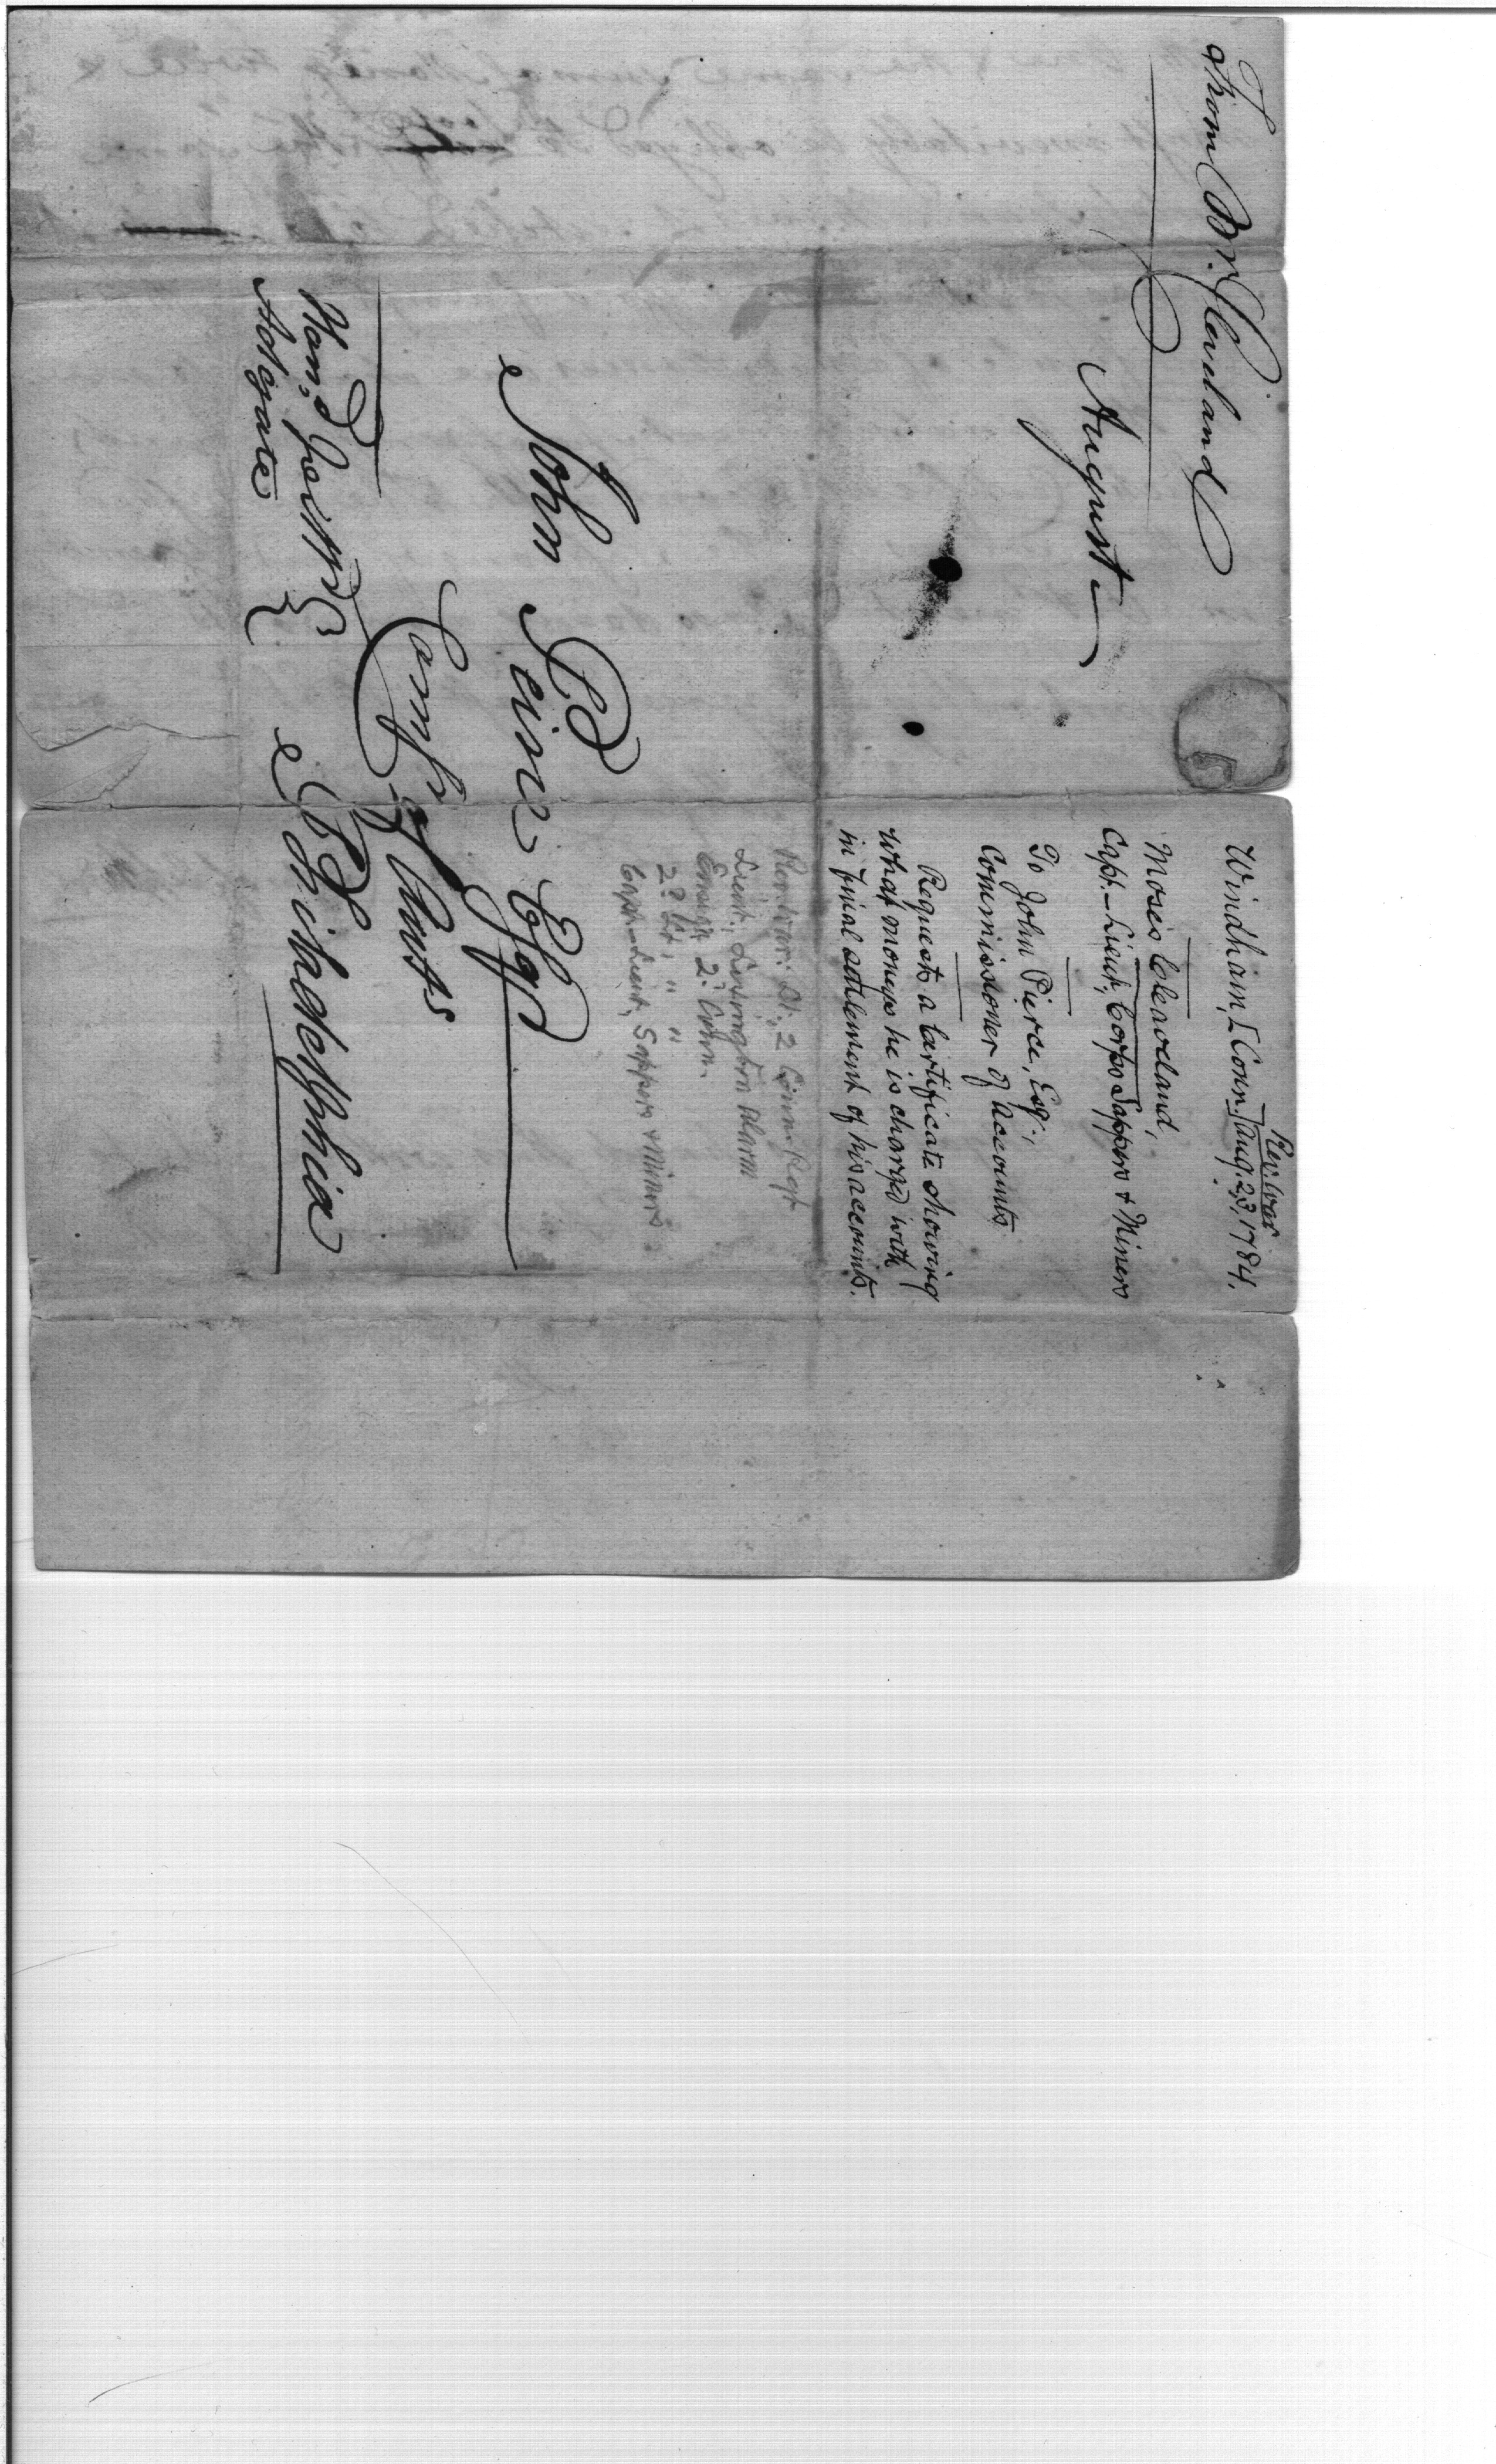 From Mr. Cleveland
August
Rev. War
Windham, [Conn.] Aug. 23, 1784.
Moses Cleaveland,
Capt.-Lieut., Corps Sappers & Miners
To John Pierce, Esq.,
Commissioner of Accounts
Requests a Certificate showing
what moneys he is charged with
in final settlement of his accounts.
Rev. War: Lt, 2 Conn. Regt
Lieut., Lexington Alarm
Ensign 2d Conn.
2d Lt, " "
Capt-Lieut, Sappers & Miners
John Peirce Esqr
Comsr of Accts
Philadelphia
Hond
Adgate